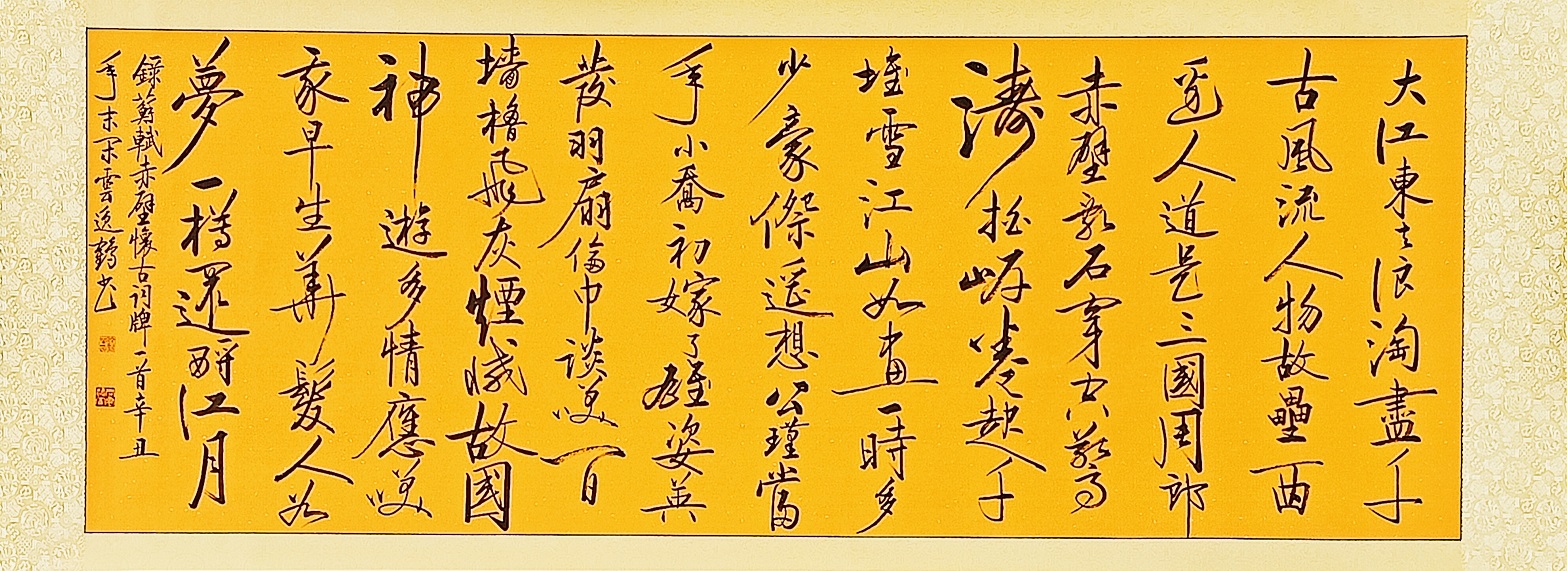 大江東去浪淘盡千
古風流人物故壘西
邊人道是三國周郎
赤壁亂石穿空驚
濤拍岸捲起千
堆雪江山如畫一時多
少豪傑遙想公瑾當
年小喬初嫁了雄姿英
發羽扇倫巾談咲間
墻櫓飛灰煙滅故國
神遊多情應咲
我早生華髮人如
夢一樽還酹江月
錄蘇軾赤壁懷古詞牌一首辛丑
年末雲逸鶴书